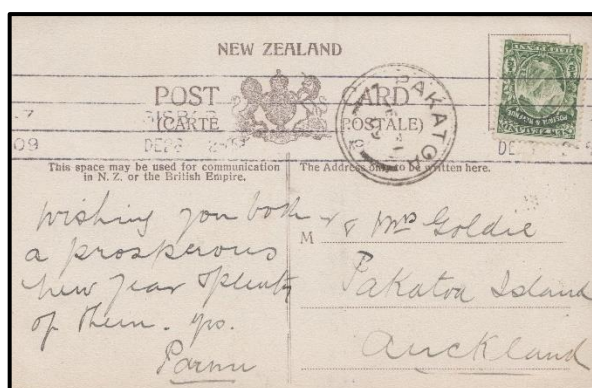 NEW ZEALAND
POST CARD
(CARTE POSTALE)
PAKATOA
09
DE
This space may be used for communication
in N. Z. or the British Empire.
The Address only to be written here.
Wishing you both
a prosperous
New Year & plenty
of them. yrs.
M r & Mrs Goldie
Pakatoa Island
Auckland